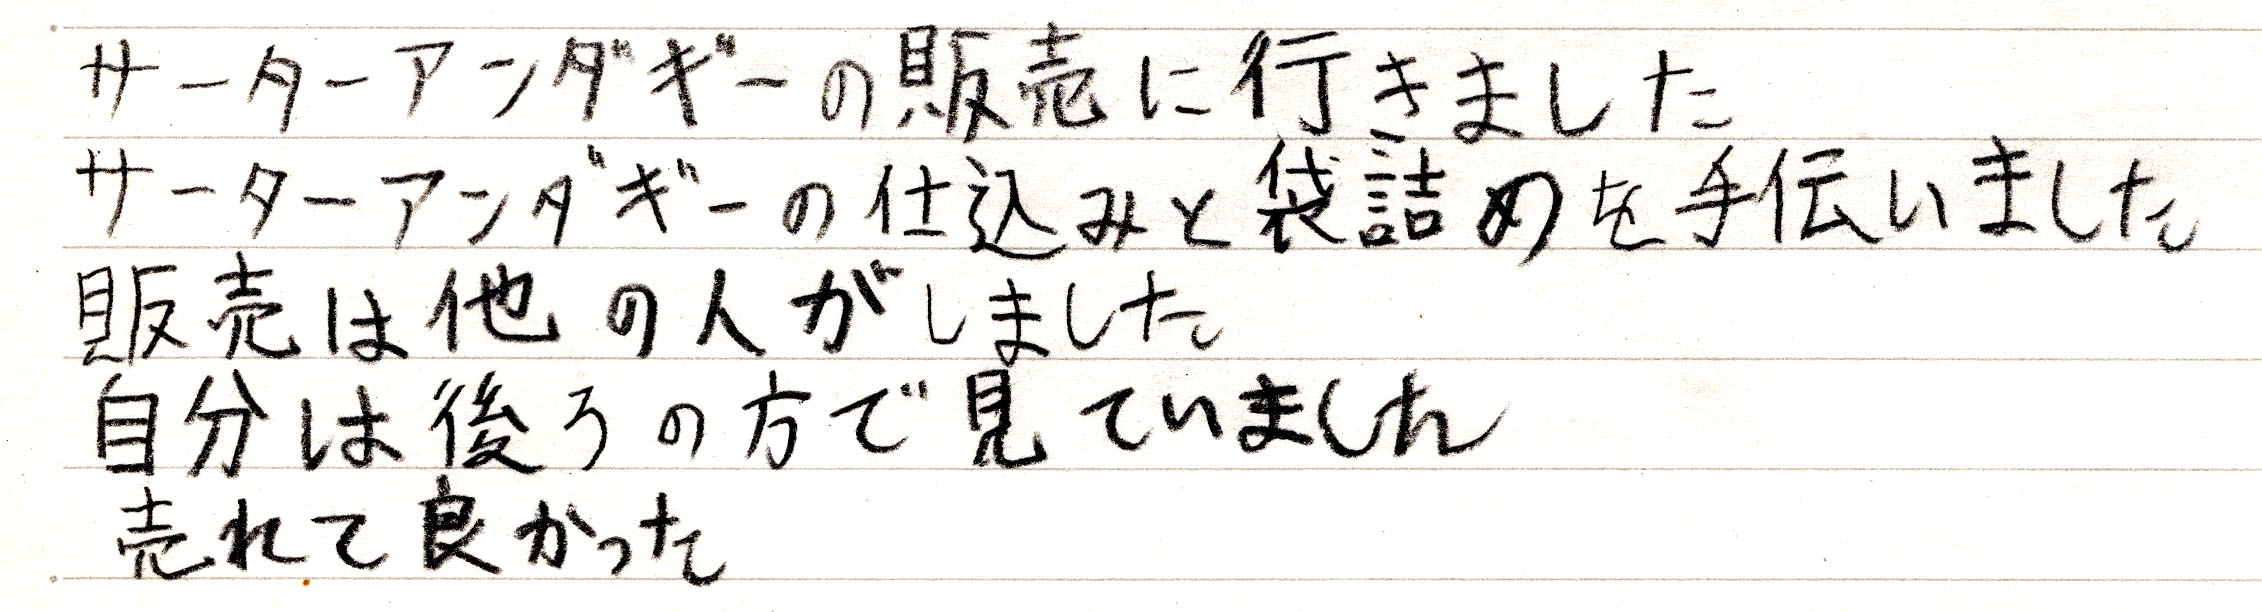 サーターアンダギーの販売に行きました
サーターアンダギーの仕込みと袋詰めを手伝いました
販売は他の人がしました
自分は後ろの方で見ていました
売れて良かった